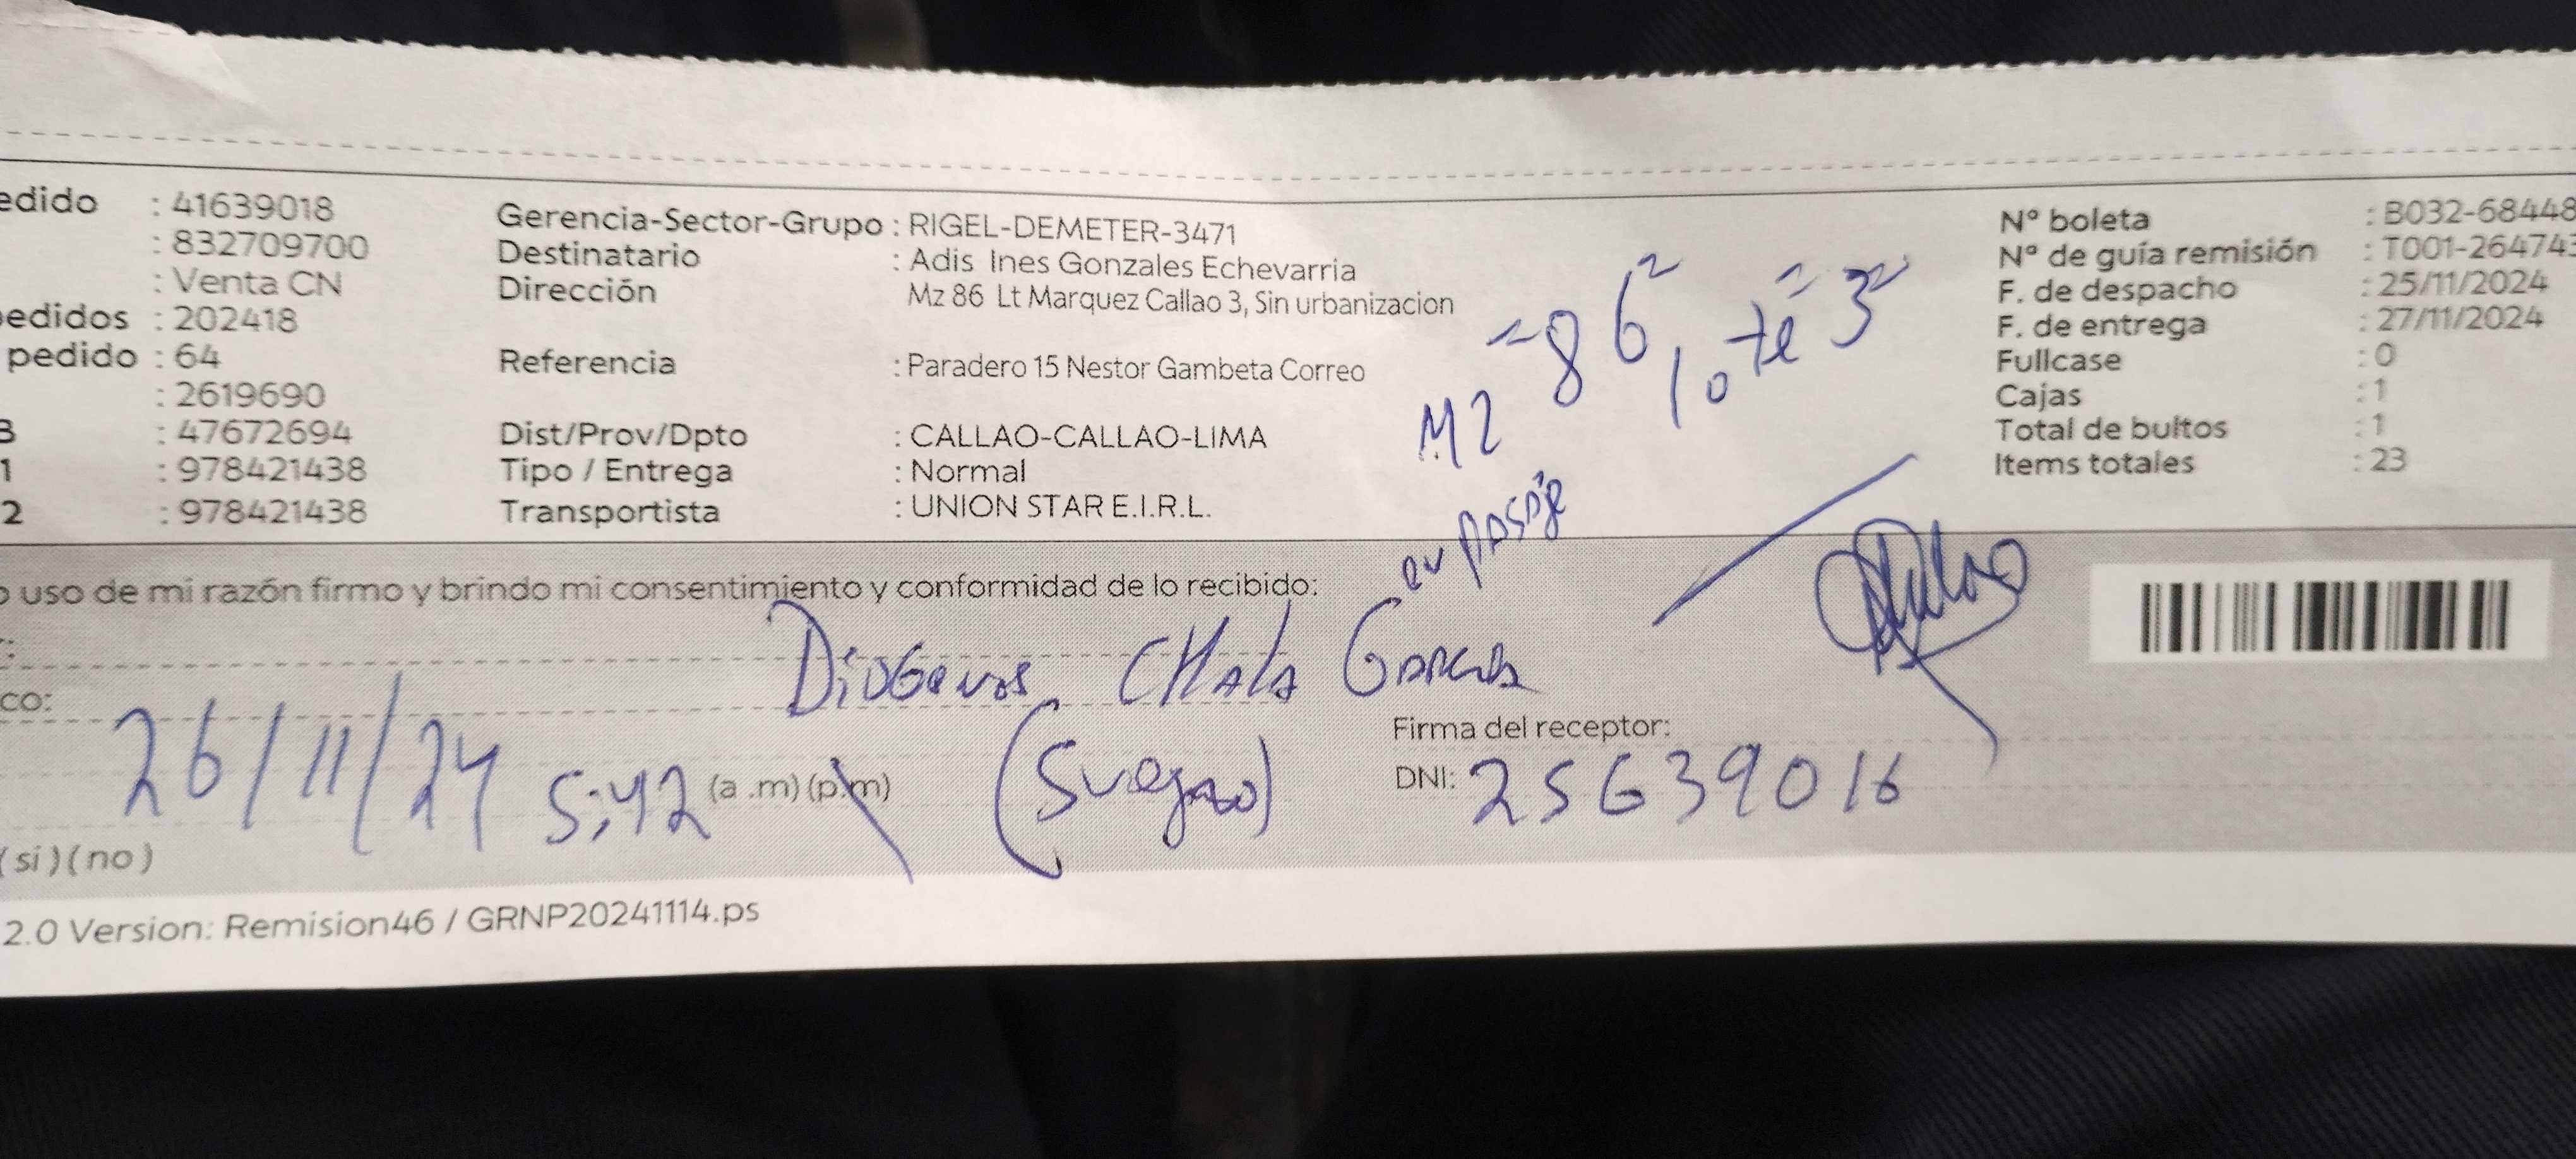 edido : 41639018
: 832709700
: Venta CN
pedidos : 202418
pedido : 64
: 2619690
3 : 47672694
1 : 978421438
2 : 978421438
Gerencia-Sector-Grupo : RIGEL-DEMETER-3471
Destinatario : Adis Ines Gonzales Echevarria
Dirección Mz 86 Lt Marquez Callao 3, Sin urbanizacion
Referencia : Paradero 15 Nestor Gambeta Correo
Dist/Prov/Dpto : CALLAO-CALLAO-LIMA
Tipo / Entrega : Normal
Transportista : UNION STAR E.I.R.L.
MZ "86" lote "3"
en pasaje
Nº boleta : B032-68448
Nº de guía remisión : T001-264743
F. de despacho : 25/11/2024
F. de entrega : 27/11/2024
Fullcase : 0
Cajas : 1
Total de bultos : 1
Items totales : 23
o uso de mi razón firmo y brindo mi consentimiento y conformidad de lo recibido:
Diogenes CHALA GARCIA
co:
Firma del receptor:
26/11/24 5:42 (a .m) (p.m) (Suegro) DNI: 25639016
(si)(no)
2.0 Version: Remision46 / GRNP20241114.ps